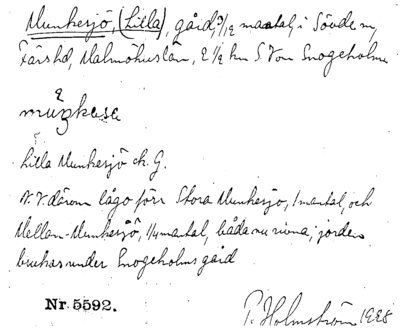 Munkesjö, (Lilla), gård, 7/12 mantal, i Sövde sn,
Färshd, Malmöhuslän, 2 1/2 km S. Von Snogeholm
Lilla Munkesjö ch. G.
N. V. därom lågo förr Stora Munkesjö, 1 mantal, och
Mellan-Munkesjö, 1/4 mantal, båda nu rivna; jorden
brukas under Snogeholms gård
Nr. 5592.
P. Holmström 1928